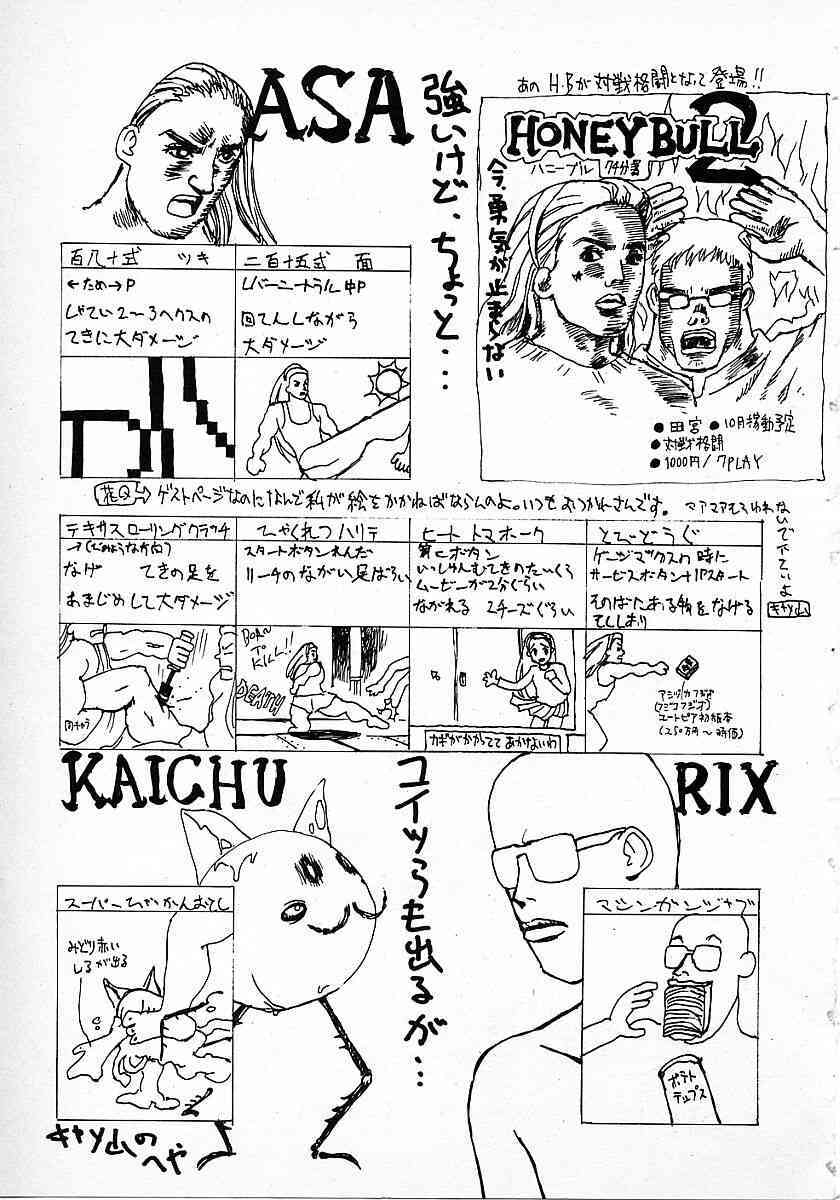 ASA
強いけど、ちょっと…
あの H・Bが対戦格闘となって登場!!
HONEY BULL 2
ハニーブル
今、勇気が止まらない
●田宮 ●10月稼動予定
●対戦格闘
●1000円/7PLAY
百八十式 ツキ
←ため→P
してい2~3ヘクスの
てきに大ダメージ
二百十五式 面
レバーニートラル中P
回てんしながら
大ダメージ
ゲストページなのになんで私が絵をかかねばならんのよ。いつもおつかれさんです。
キャ山
テキサスローリングクラッチ
なげ てきの足を
あまじめして大ダメージ
ひゃくれつハリテ
スタートボタンれんだ
リーチのながい足ばらい
BORN TO KILL!!
DEATH
ヒートトマホーク
いっしゅんむてきのたいくう
ムービーが2分ぐらい
ながれる 2チーズぐらい
カギがかかっててあかないわ
とびどうぐ
ゲージマックスの時に
サービスボタン+1Pスタート
そのばにある物をなげる
ユートピア初版本
(250万円~時価)
KAICHU
コイツらも出るが…
RIX
みどり赤い
しるが出る
マシンガンジャブ
ポテト
チップス
キャ山の
へや